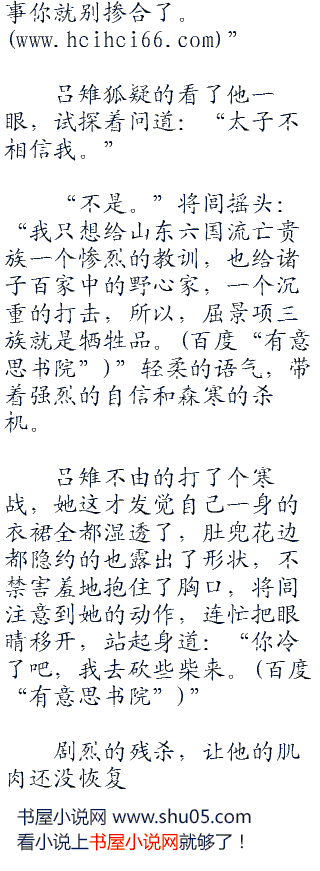 事你就别掺合了。
(www.hcihci66.com)”
吕雉狐疑的看了他一
眼，试探着问道：“太子不
相信我。”
“不是。”将闾摇头：
“我只想给山东六国流亡贵
族一个惨烈的教训，也给诸
子百家中的野心家，一个沉
重的打击，所以，屈景项三
族就是牺牲品。(百度“有意
思书院”)”轻柔的语气，带
着强烈的自信和森寒的杀
机。
吕雉不由的打了个寒
战，她这才发觉自己一身的
衣裙全都湿透了，肚兜花边
都隐约的也露出了形状，不
禁害羞地抱住了胸口，将闾
注意到她的动作，连忙把眼
睛移开，站起身道：“你冷
了吧，我去砍些柴来。(百度
“有意思书院”)”
剧烈的残杀，让他的肌
肉还没恢复
书屋小说网 www.shu05.com
看小说上书屋小说网就够了！